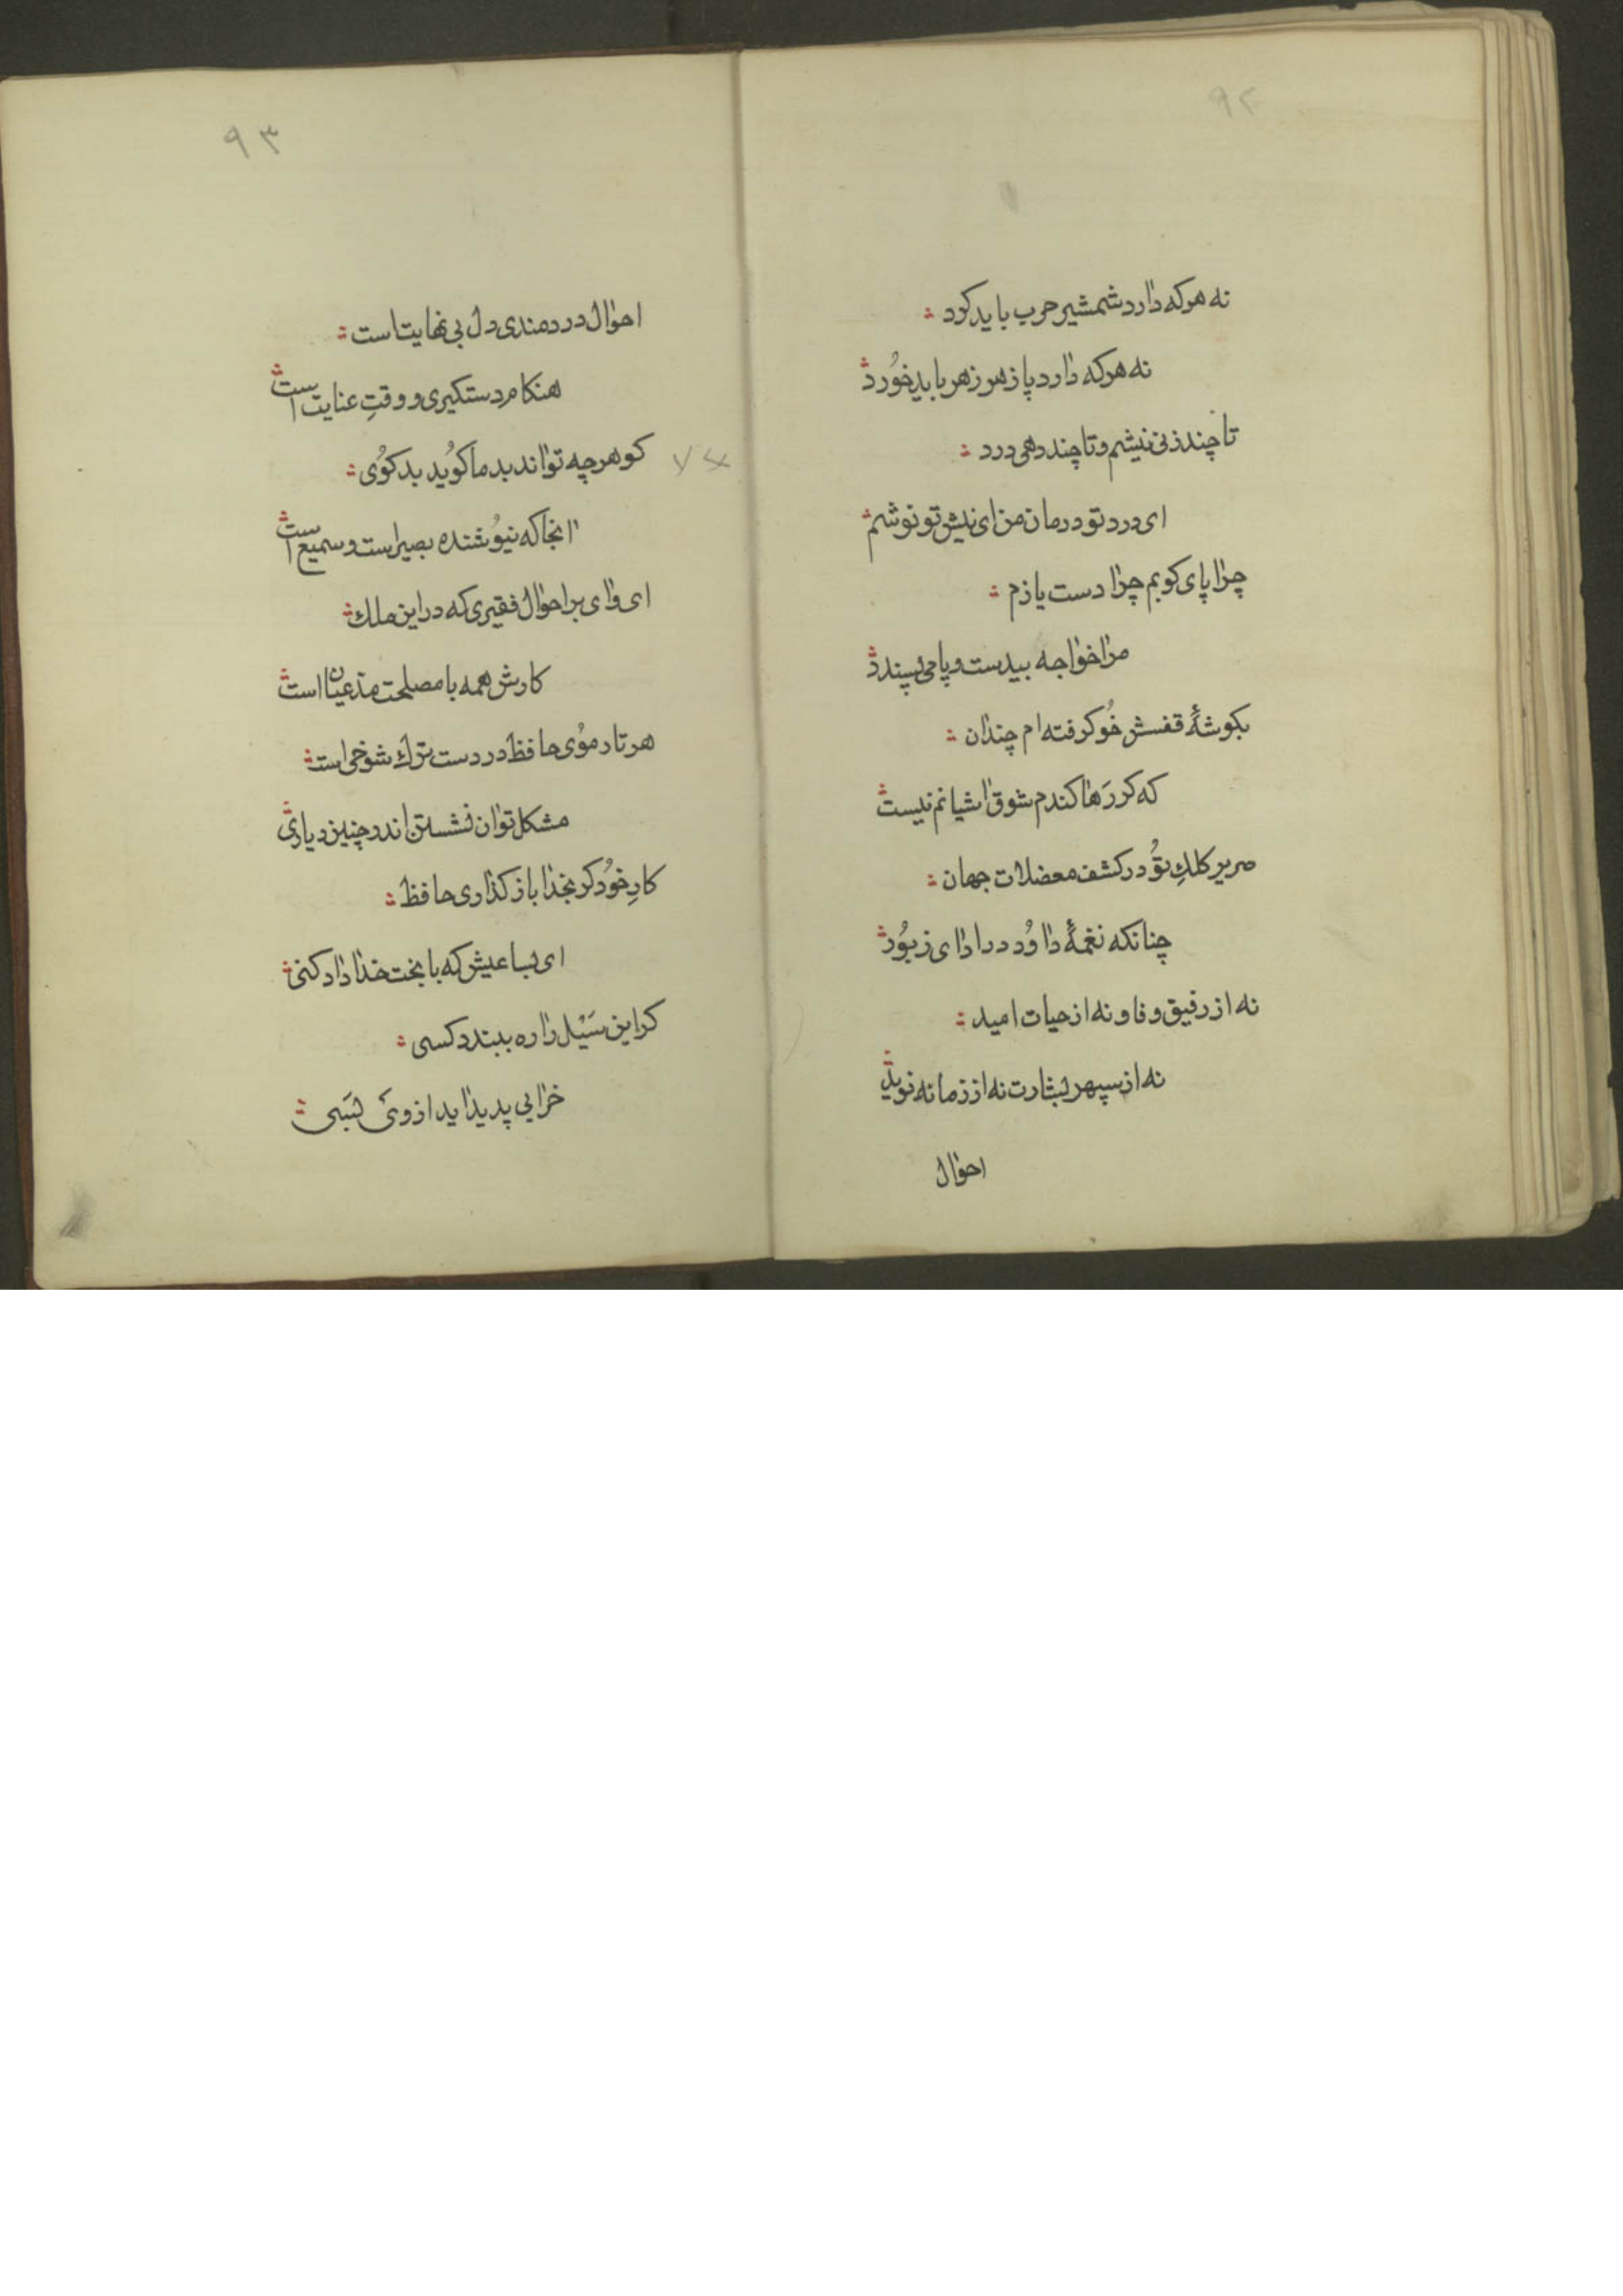 ۹۲
نه هرکه دارد شمشیر حرب باید کرد
نه هرکه دارد پازهر زهر باید خُورد
تا چند زنی نیشم و تا چند دهی درد
ای درد تو درمان من ای نیش تو نوشم
چرا پای کوبم چرا دست یازم
مرا خواجه بیدست و پا می پسندد
بکوشهٔ قفسش خُو کرفته ام چندان
که کر رَها کندم شوق اشیانم نیست
صریر کلكِ تُو در کشف معضلات جهان
چنانکه نغمهٔ داوُد در ادای زبُور
نه از رفیق وفا و نه از حیات امید
نه از سپهر بشارت نه از زمانه نوید
احوال
۹۳
احوال دردمندی دل بی نهایت است
هنکام دستکیری و وقتِ عنایت است
کو هرچه تواند بد ما کوُید بد کوُی
انجا که نیوُشنده بصیر است و سمیع است
۷۴
ای وای بر احوال فقیری که در این ملك
کارش همه با مصلحت مدعیان است
هر تار موُی حافظ در دست ترك شوخی است
مشکل توان نشستن اندر چنین دیاری
کارِ خوُد کر بخدا باز کذاری حافظ
ای بسا عیش که با بخت خدا داد کنی
کر این سَیْل را ره ببندد کسی
خرابی پدید اید از وَی بَسی